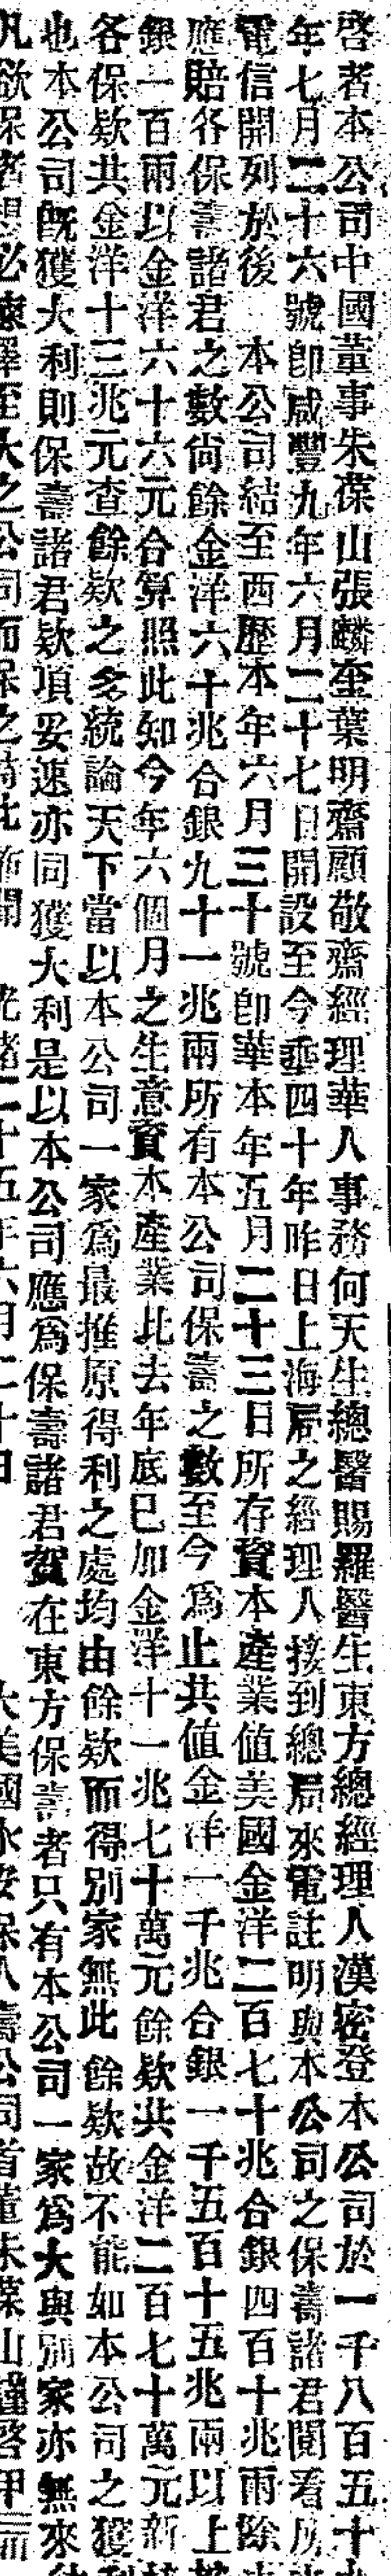 啓者本公司中國董事朱葆山張麟奎葉明齋顧敬齋經理華人事務何天生總醫賜羅醫生東方總經理人漢密登本公司於一千八百五十
年七月二十六號卽咸豐九年六月二十七日開設至今垂四十年昨日上海局之經理人接到總局來電註明與本公司之保壽諸君閱看
電信開列於後 本公司結至西歷本年六月三十號卽華本年五月二十三日所存資本產業值美國金洋二百七十兆合銀四百十兆兩除
應賠各保壽諸君之數尙餘金洋六十兆合銀九十一兆兩所有本公司保壽之數至今爲止共值金洋一千兆合銀一千五百十五兆兩以上
銀一百兩以金洋六十六元合算照此如今年六個月之生意資本產業比去年底已加金洋十一兆七十萬元餘欵共金洋二百七十萬元新
各保欵共金洋十三兆元查餘欵之多統論天下當以本公司一家爲最推原得利之處均由餘欵而得別家無此餘欵故不能如本公司之獲
也本公司旣獲大利則保壽諸君欵項妥速亦同獲大利是以本公司應爲保壽諸君賀在東方保壽者只有本公司一家爲大與別家亦無來
凡欲保者想必速擇至大之公司而保之 光緒二十五年六月二十日 大美國永安保人壽公司首董朱葆山謹啓